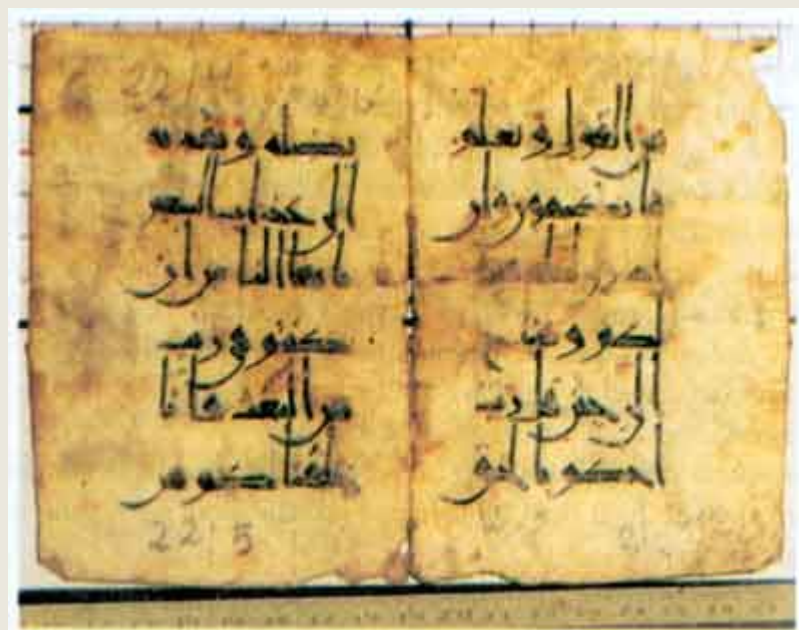 من القول ويعلم
ما تكتمون وان
ادري لعله فتنة
لكم ومتع
الى حين قل رب
احكم بالحق
22/4
يضله ويهديه
الى عذاب السعير
يايها الناس ان
كنتم في ريب
من البعث فانا
خلقناكم من
22/5